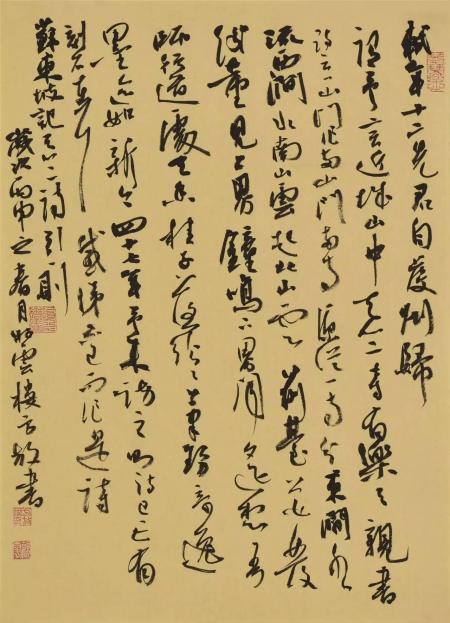 軾年十二先君自虔州歸
謂予言近城山中天竺寺有樂天親書
詩云一山門作兩山門兩寺原從一寺分東澗水
流西澗水南山雲起北山雲前臺花發
後臺見上界鐘鳴下界聞遙想吾
師行道處天香桂子落紛紛筆勢奇逸
墨跡如新今四十七年予來訪之則詩已亡有
刻石在耳感涕不已而作是詩
蘇東坡記天竺詩引一則
歲次丙申之春月於雲樓書